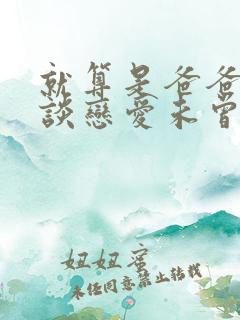 就算是爸爸
談戀愛未曾
妞妞蜜
未經同意禁止轉載